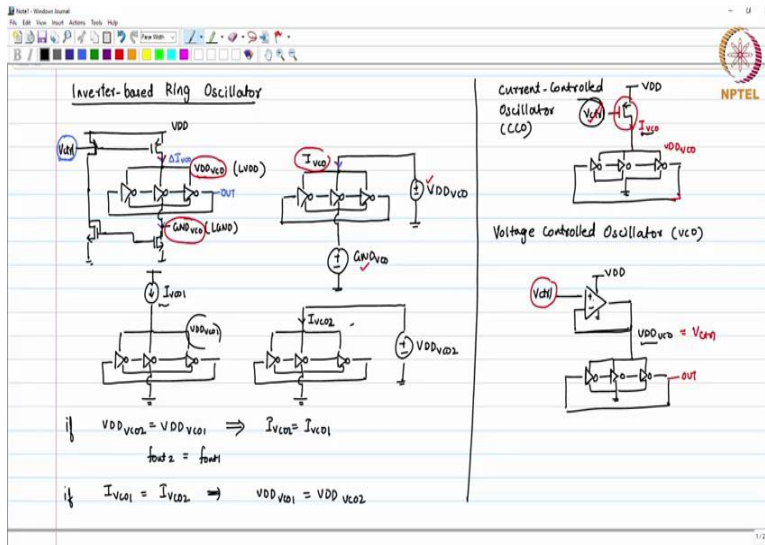 Note1 - Windows Journal
File Edit View Insert Actions Tools Help
Page Width
B I
NPTEL
Inverter-based Ring Oscillator
VDD
Vctrl
ΔIvco
VDDvco (LVDD)
OUT
GNDvco (LGND)
Ivco
VDDvco
GNDvco
Ivco1
VDDvco1
Ivco2
VDDvco2
if VDDvco2 = VDDvco1 ⇒ Ivco2 = Ivco1
fout2 = fout1
if Ivco1 = Ivco2 ⇒ VDDvco1 = VDDvco2
Current-Controlled
Oscillator
(CCO)
Vctrl
VDD
Ivco
VDDvco
Voltage Controlled Oscillator (VCO)
VDD
Vctrl
VDDvco = Vctrl
OUT